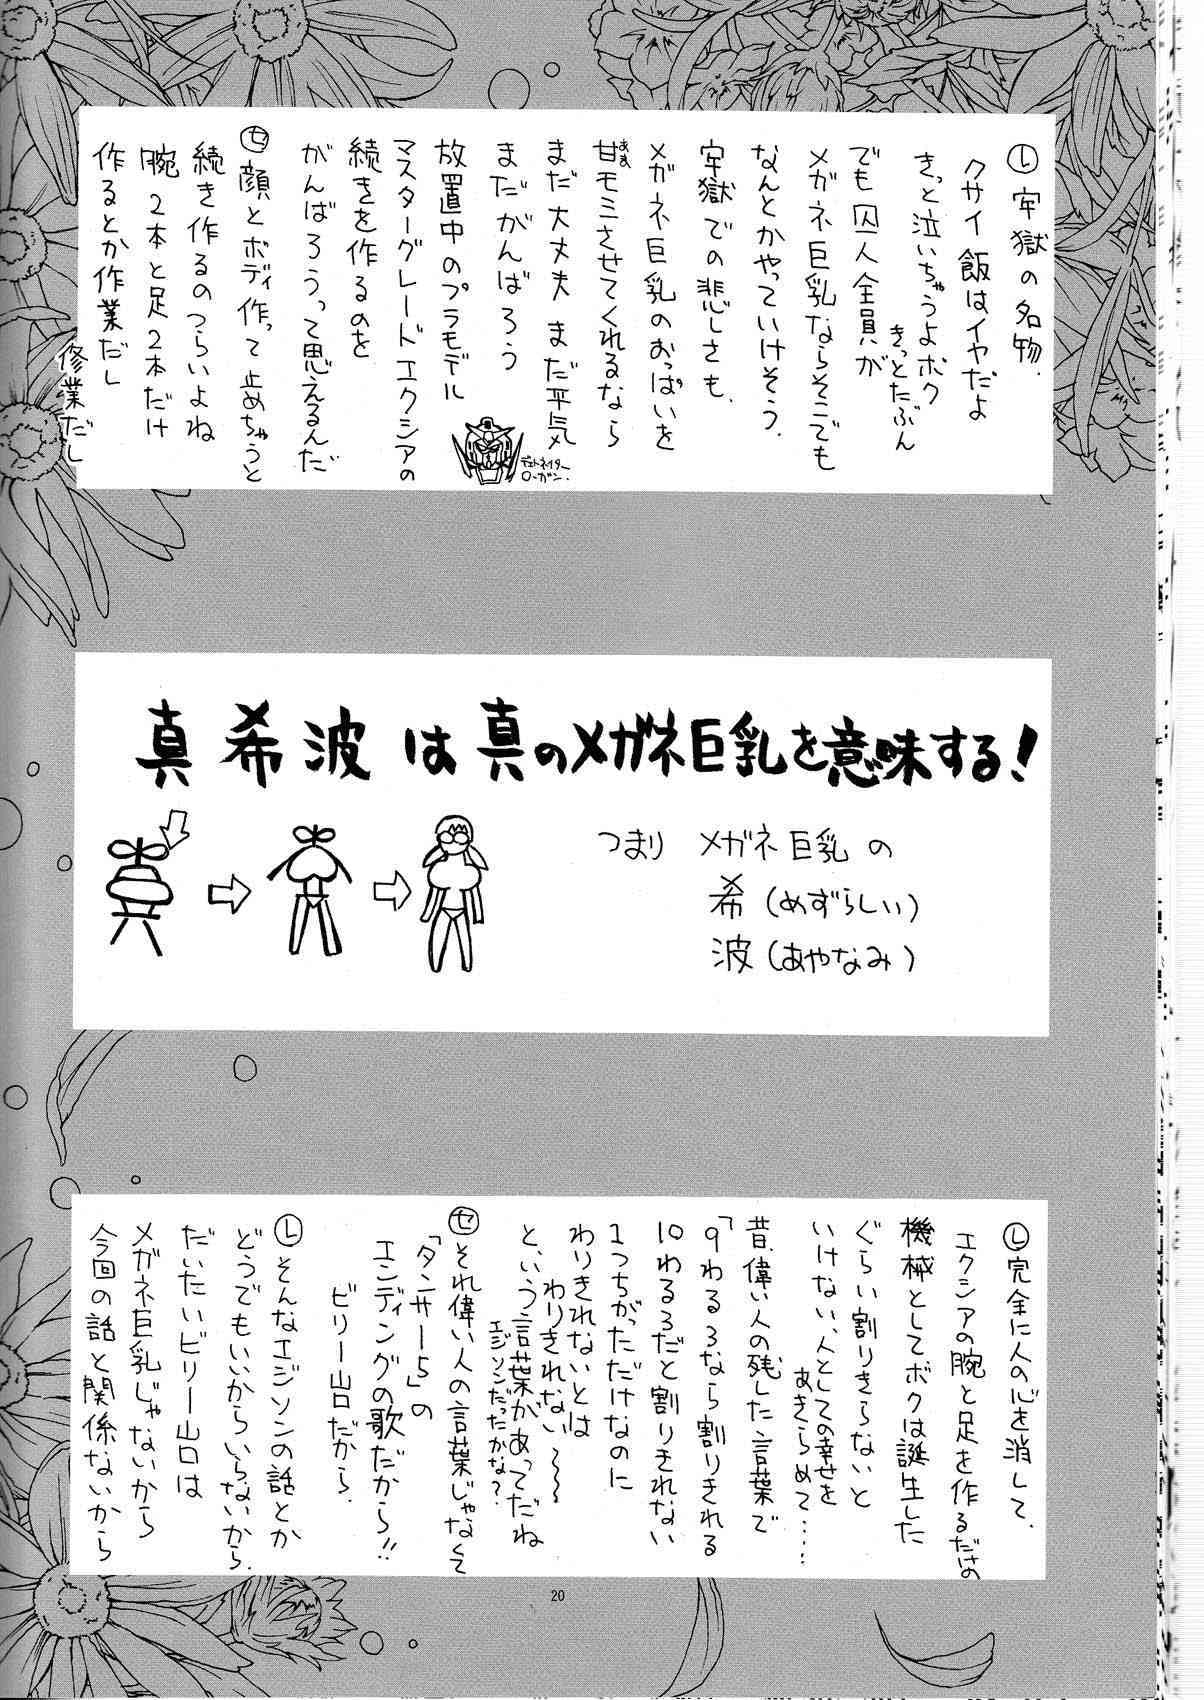 ㋹牢獄の名物.
クサイ飯はイヤだよ
きっと泣いちゃうよボク
きっとたぶん
でも囚人全員が
メガネ巨乳ならそこでも
なんとかやっていけそう.
牢獄での悲しさも.
メガネ巨乳のおっぱいを
甘モミさせてくれるなら
あま
まだ大丈夫 まだ平気
まだがんばろう
放置中のプラモデル
マスターグレードエクシアの
続きを作るのを
がんばろうって思えるんだ
デェトネイター
ローガン.
㋝顔とボディ作って止めちゃうと
続き作るのつらいよね
腕2本と足2本だけ
作るとか作業だし
修業だし
真希波は真のメガネ巨乳を意味する!
つまり メガネ巨乳の
希(めずらしい)
波(あやなみ)
㋹完全に人の心を消して.
エクシアの腕と足を作るだけの
機械としてボクは誕生した
ぐらい割りきらないと
いけない、人としての幸せを
あきらめて‥‥
昔、偉い人の残した言葉で
「9わる3なら割りきれる
10わる3だと割りきれない
1つちがっただけなのに
わりきれないとは
わりきれない〜〜
と、いう言葉があってだね
エジソンだったかな?
㋝それ偉い人の言葉じゃなくて
「タンサー5」の
エンディングの歌だから!!
ビリー山口だから.
㋹そんなエジソンの話とか
どうでもいいからいらないから.
だいたいビリー山口は
メガネ巨乳じゃないから
今回の話と関係ないから
20